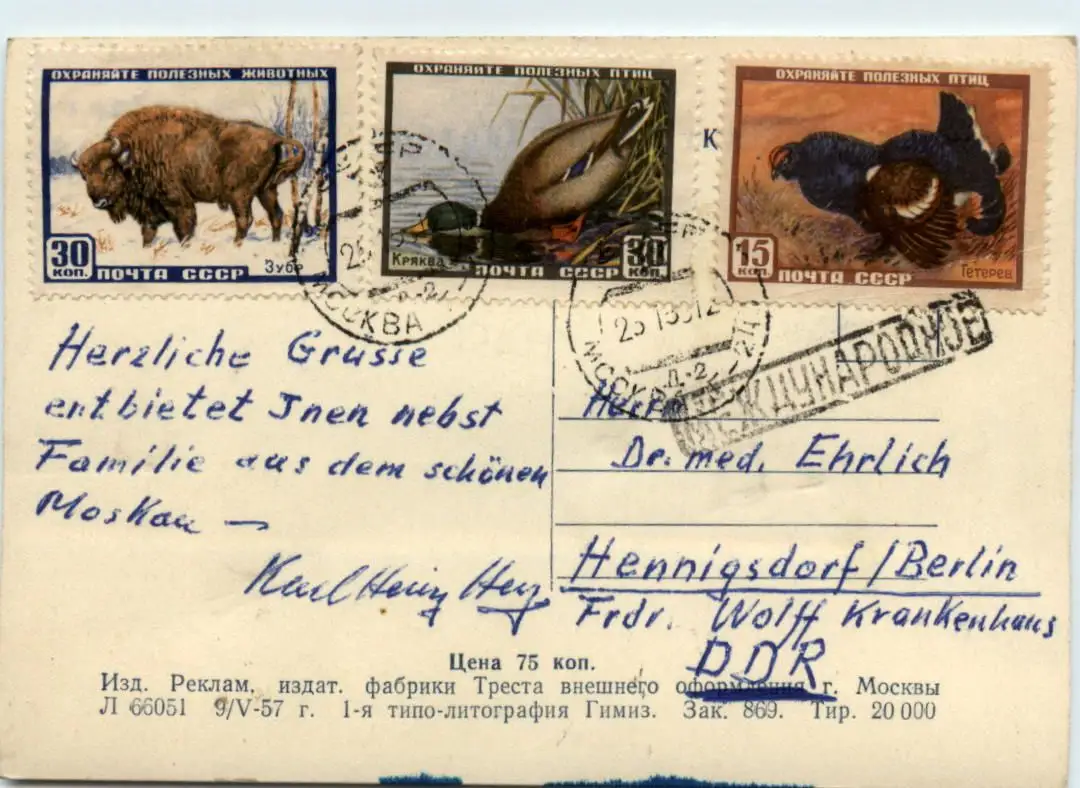 ОХРАНЯЙТЕ ПОЛЕЗНЫХ ЖИВОТНЫХ
30 КОП.
Зубр
ПОЧТА СССР
ОХРАНЯЙТЕ ПОЛЕЗНЫХ ПТИЦ
Кряква
ПОЧТА СССР
30 КОП.
ОХРАНЯЙТЕ ПОЛЕЗНЫХ ПТИЦ
15 КОП.
ПОЧТА СССР
Тетерев
К
МОСКВА
МОСКВА
Д-2
МЕЖДУНАРОДНОЕ
Herzliche Grüsse
entbietet Jnen nebst
Familie aus dem schönen
Moskau —
Karl Heinz
Herrn
Dr. med. Ehrlich
Hennigsdorf/Berlin
Frdr. Wolff Krankenhaus
DDR
Цена 75 коп.
Изд. Реклам, издат. фабрики Треста внешнего оформления г. Москвы
Л 66051 9/V-57 г. 1-я типо-литография Гимиз. Зак. 869. Тир. 20 000